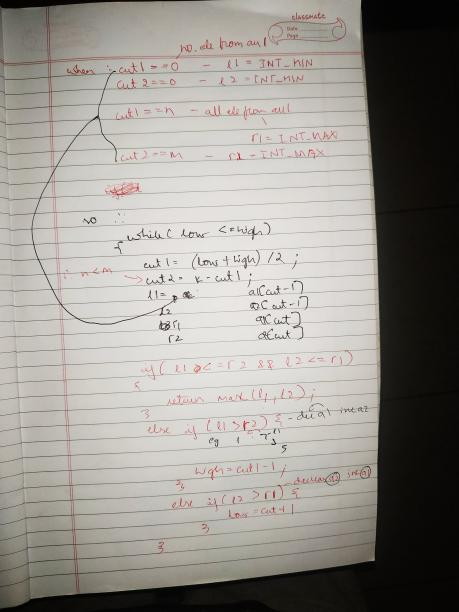 classmate
Date
Page
no. ele from arr1
when : cut1 == 0 - l1 = INT_MIN
cut 2 == 0 - l2 = INT_MIN
cut1 == n - all ele from arr1
r1 = INT_MAX
cut 2 == m - r2 = INT_MAX
so ∴
{ while( low <= high)
cut1 = (low + high) /2 ;
∴ n<m → cut2 = k - cut1 ;
l1 = a1[cut-1]
l2 a2[cut-1]
r1 a1[cut]
r2 a2[cut]
if( l1 <= r2 && l2 <= r1)
{
return max(l1, l2) ;
}
else if (l1 > r2) { - dec a1 inc a2
eg 1 7
5
high = cut1 - 1 ;
}
else if (l2 > r1) { - decrease a2 inc a1
low = cut + 1
}
}